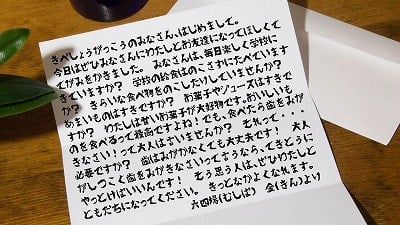 きべしょうがっこうのみなさん、はじめまして。
今日はぜひみなさんにわたしとお友達になってほしくて
てがみをかきました。みなさんは、毎日楽しく学校に
きていますか？ 学校の給食はのこさずにたべています
か？ きらいな食べ物をのこしたりしていませんか？
あまいものはすきですか？ お菓子やジュースはすきで
すか？ わたしは甘いお菓子が大好物です。おいしいも
のを食べるって最高ですよね！でも、食べたら歯をみが
きなさい！って大人はさいませんか？ それって・・・
必要ですか？ 歯はみがかなくても大丈夫です！ 大人
がしつこく歯をみがきなさいって言うなら、てきとうに
やっとけばいいんです！ そう思う人は、ぜひわたしと
ともだちになってください。 きっとなかよくなれます。
六四塔(むしば) 金(きん)より